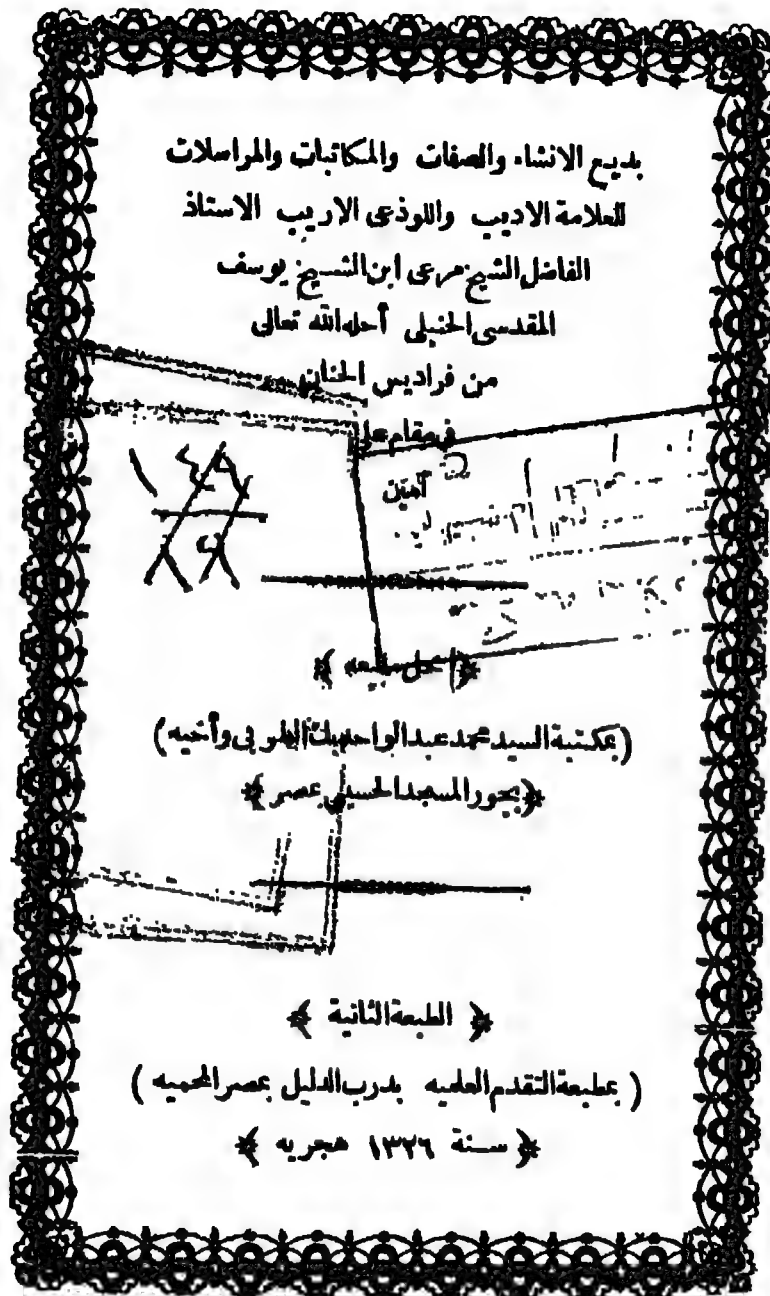 بديع الانشاء والصفات والمكاتبات والمراسلات
للعلامة الاديب واللوذعى الاريب الاستاذ
الفاضل الشيخ مرعى ابن الشيخ يوسف
المقدسى الحنبلى أحله الله تعالى
من فراديس الجنان
فى مقام
آمين
﴿ محل ﴾
(بمكتبة السيد محمد عبدالواحد بك الطوبى وأخيه)
﴿بجوار المسجد الحسينى بمصر﴾
﴿ الطبعة الثانية ﴾
( بمطبعة التقدم العلميه بدرب الدليل بمصر المحميه )
﴿ سنة ١٣٢٦ هجريه ﴾